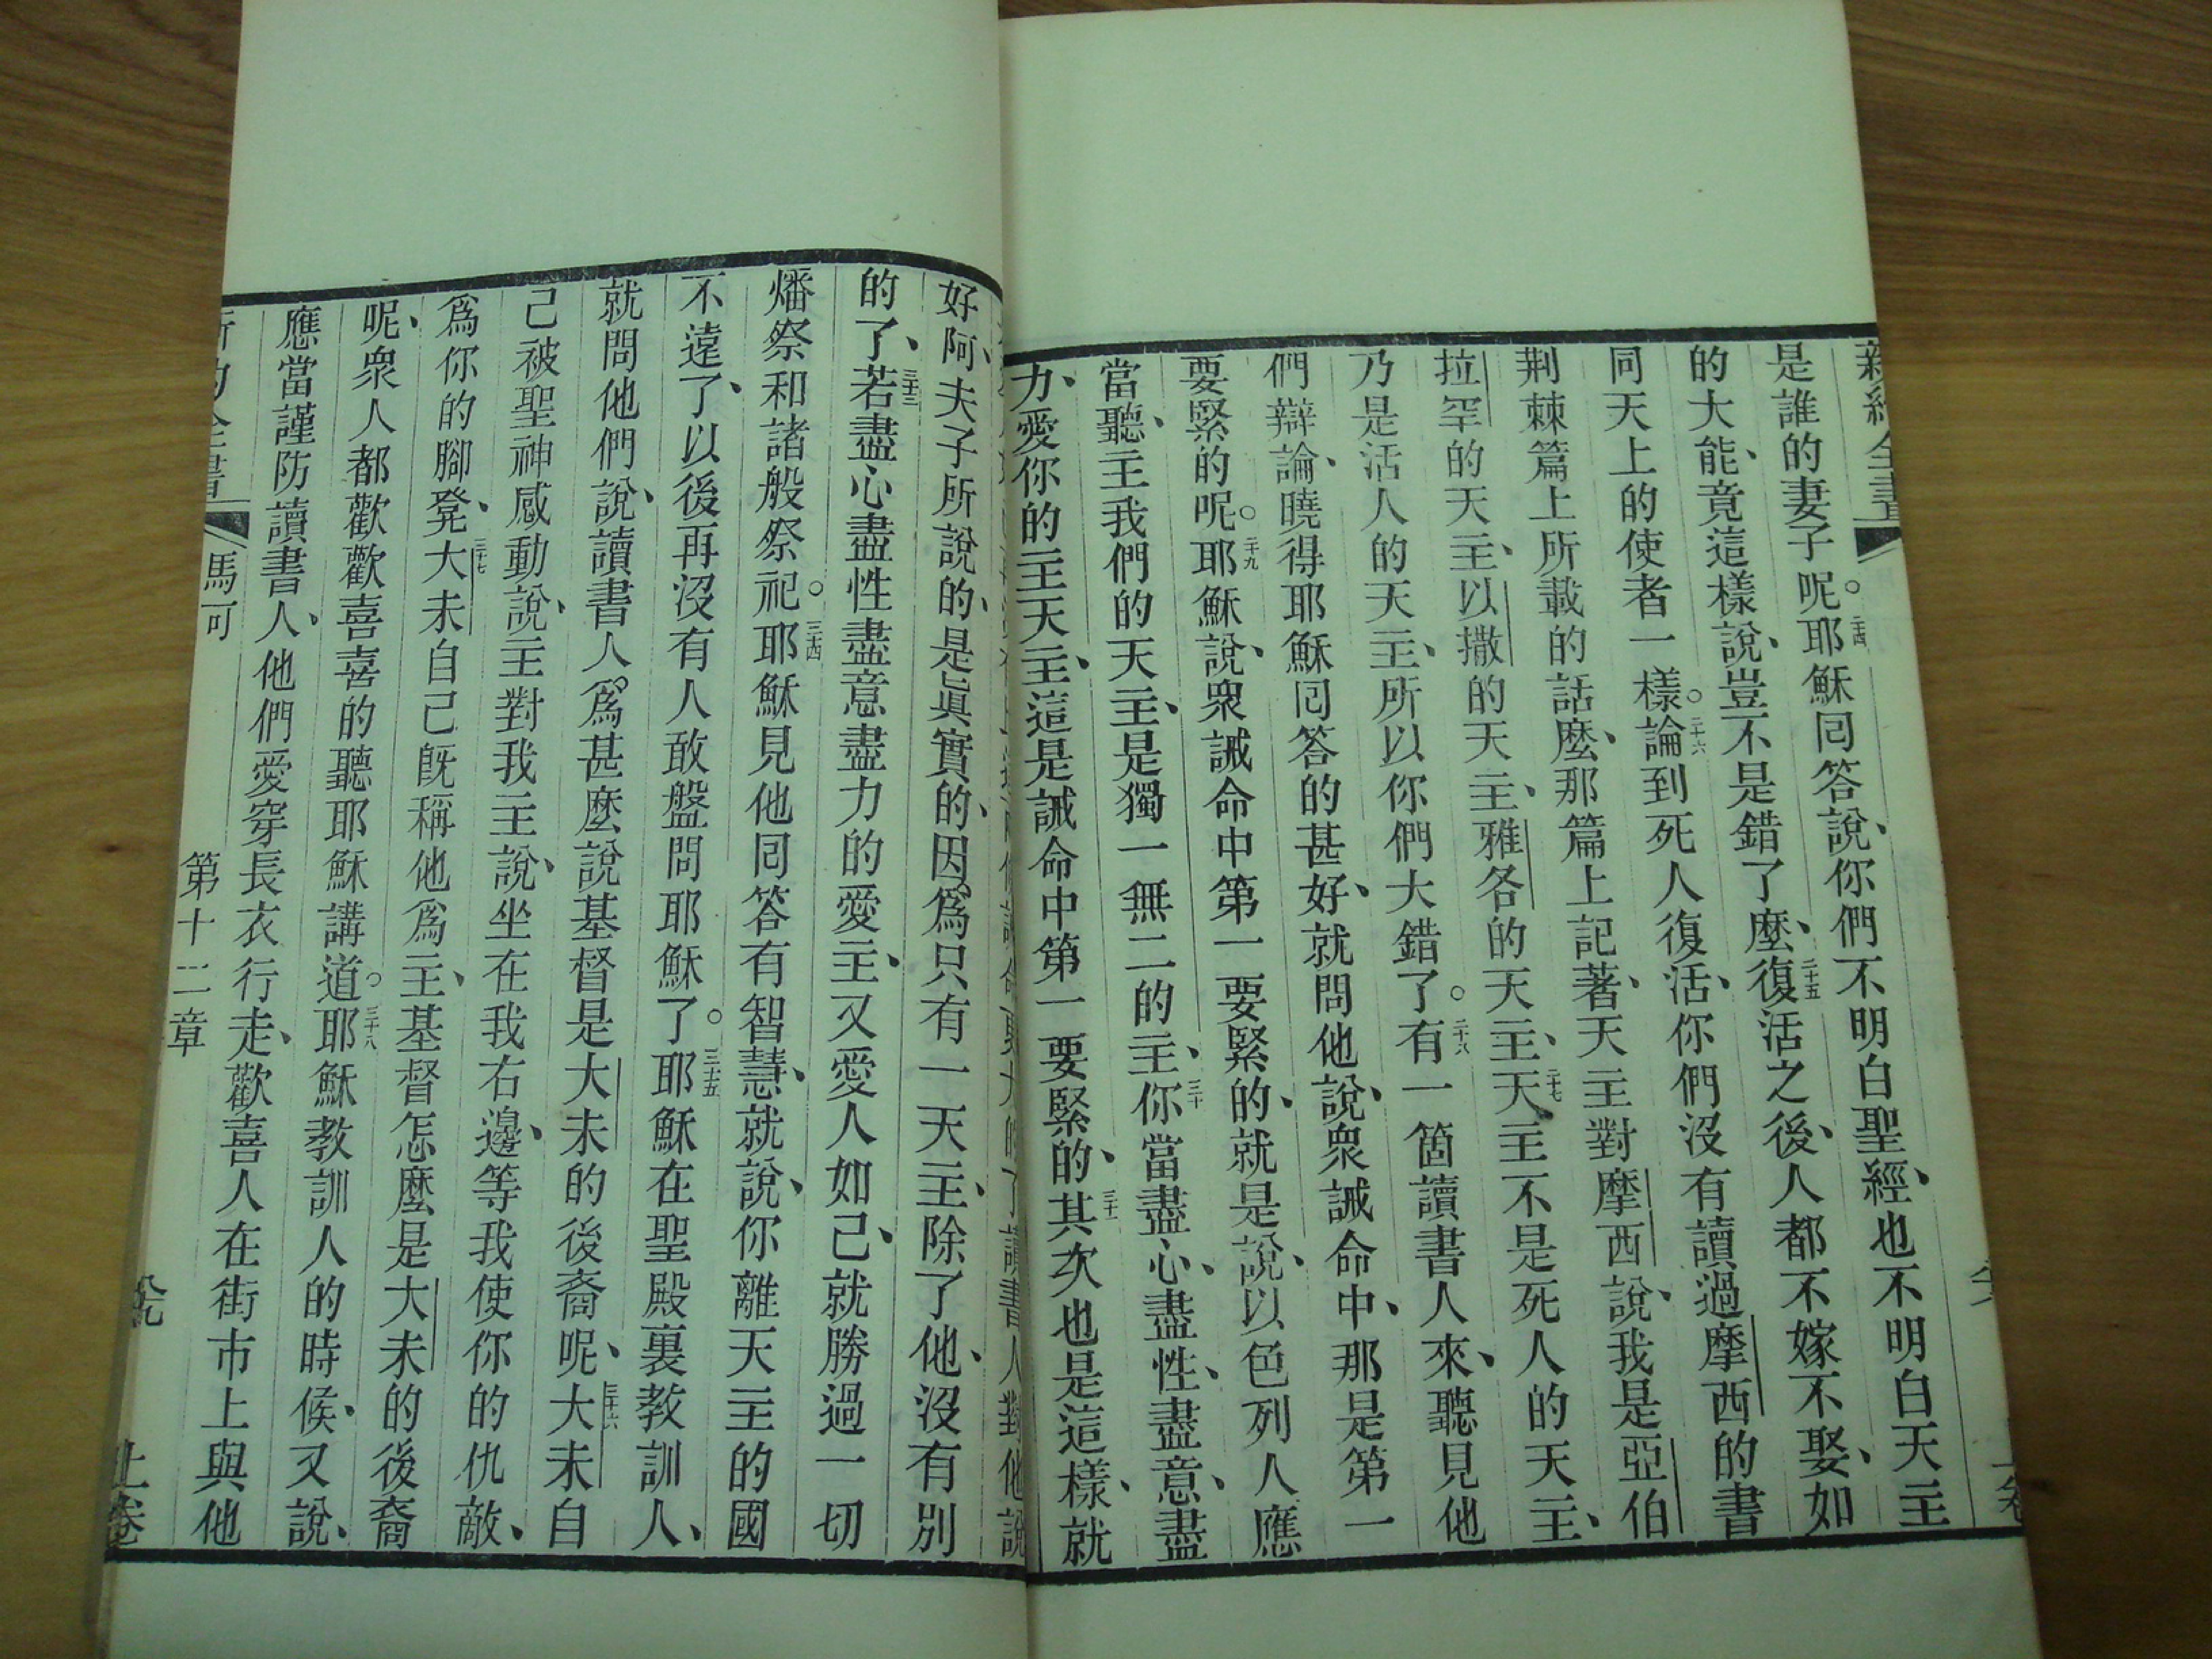 新約全書
是誰的妻子呢。二十四耶穌囘答說、你們不明白聖經、也不明白天主
的大能、竟這樣說、豈不是錯了麼、二十五復活之後、人都不嫁不娶、如
同天上的使者一樣。二十六論到死人復活、你們沒有讀過摩西的書
荆棘篇上所載的話麼、那篇上記著、天主對摩西說、我是亞伯
拉罕的天主、以撒的天主、雅各的天主、二十七天主不是死人的天主、
乃是活人的天主、所以你們大錯了。二十八有一箇讀書人來、聽見他
們辯論、曉得耶穌囘答的甚好、就問他說、衆誡命中、那是第一
要緊的呢。二十九耶穌說、衆誡命中第一要緊的、就是說、以色列人應
當聽、主我們的天主、是獨一無二的主、三十你當盡心、盡性、盡意、盡
力、愛你的主天主、這是誡命中第一要緊的、三十一其次也是這樣、就
讀書人對他說
好阿、夫子所說的、是眞實的、因爲只有一天主、除了他、沒有別
的了、三十三若盡心盡性盡意盡力的愛主、又愛人如己、就勝過一切
燔祭和諸般祭祀。三十四耶穌見他囘答有智慧、就說、你離天主的國
不遠了、以後再沒有人敢盤問耶穌了。三十五耶穌在聖殿裏教訓人、
就問他們說、讀書人爲甚麼說基督是大未的後裔呢、三十六大未自
己被聖神感動說、主對我主說、坐在我右邊、等我使你的仇敵、
爲你的腳凳、三十七大未自己旣稱他爲主、基督怎麼是大未的後裔
呢、衆人都歡歡喜喜的聽耶穌講道。三十八耶穌教訓人的時候、又說、
應當謹防讀書人、他們愛穿長衣行走、歡喜人在街市上與他
馬可 第十二章 上卷